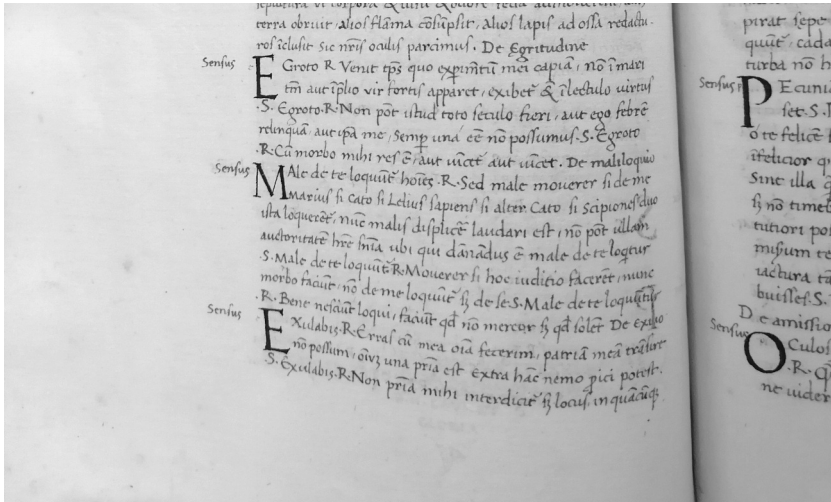 terra obruit, alios flāma cōsūpsit, alios lapis ad ossa redactu-
ros īclusit sic nr̄is oculis parcimus. De Egritudine
Sensus
E Groto R Venit tp̄s quo exp̱imētū mei capiā, nō ī mari
tm̄ aut īp̱lio vir fortis apparet, exibet & ī lectulo virtus
.S. Egroto.R.Non pōt istud toto seculo fieri, aut ego febrē
relinquā, aut ip̄a me, semp̱ una eē nō possumus.S.Egroto
.R.Cū morbo mihi res ē, aut vīcet aut vīcet. De maliloquio
Sensus
M Ale de te loquūt̄ hoīes.R.Sed male moverer si de me
Marius si Cato si Lelius sapiens si alter Cato si Scipiones duo
ista loquerēt̄, nūc malis displicē laudari est, nō pōt ullam
auctoritatē hr̄e sn̄ia ubi qui dānādus ē male de te loq̄tur
.S.Male de te loquūt̄ R.Moverer si hoc iuditio facerēt, nunc
morbo faciūt, nō de me loquūt̄ sꝫ de se.S.Male de te loquūtur
.R.Bene nesciūt loqui, faciūt qd̄ nō mereor sꝫ qd̄ solēt De exilio
Sensus
E Xulabis.R.Erras cū mea oīa fecerim, patriā meā trāsire
nō possum, oīuꝫ una pr̄ia est extra hāc nemo p̱ici potest.
.S.Exulabis.R.Non pr̄ia mihi interdicit̄ sꝫ locus, in quācūqꝫ
pirat sepe
quūt, cada
turba nō h
Sensus
P Ecuni
set.S.
o te felicē
īfelicior q
Sine illa q
sꝫ nō timeb
tutiori po
missum te
iactura tā
buisses.S.
De amissio
Sensus
O Culos
.R.
ne uider